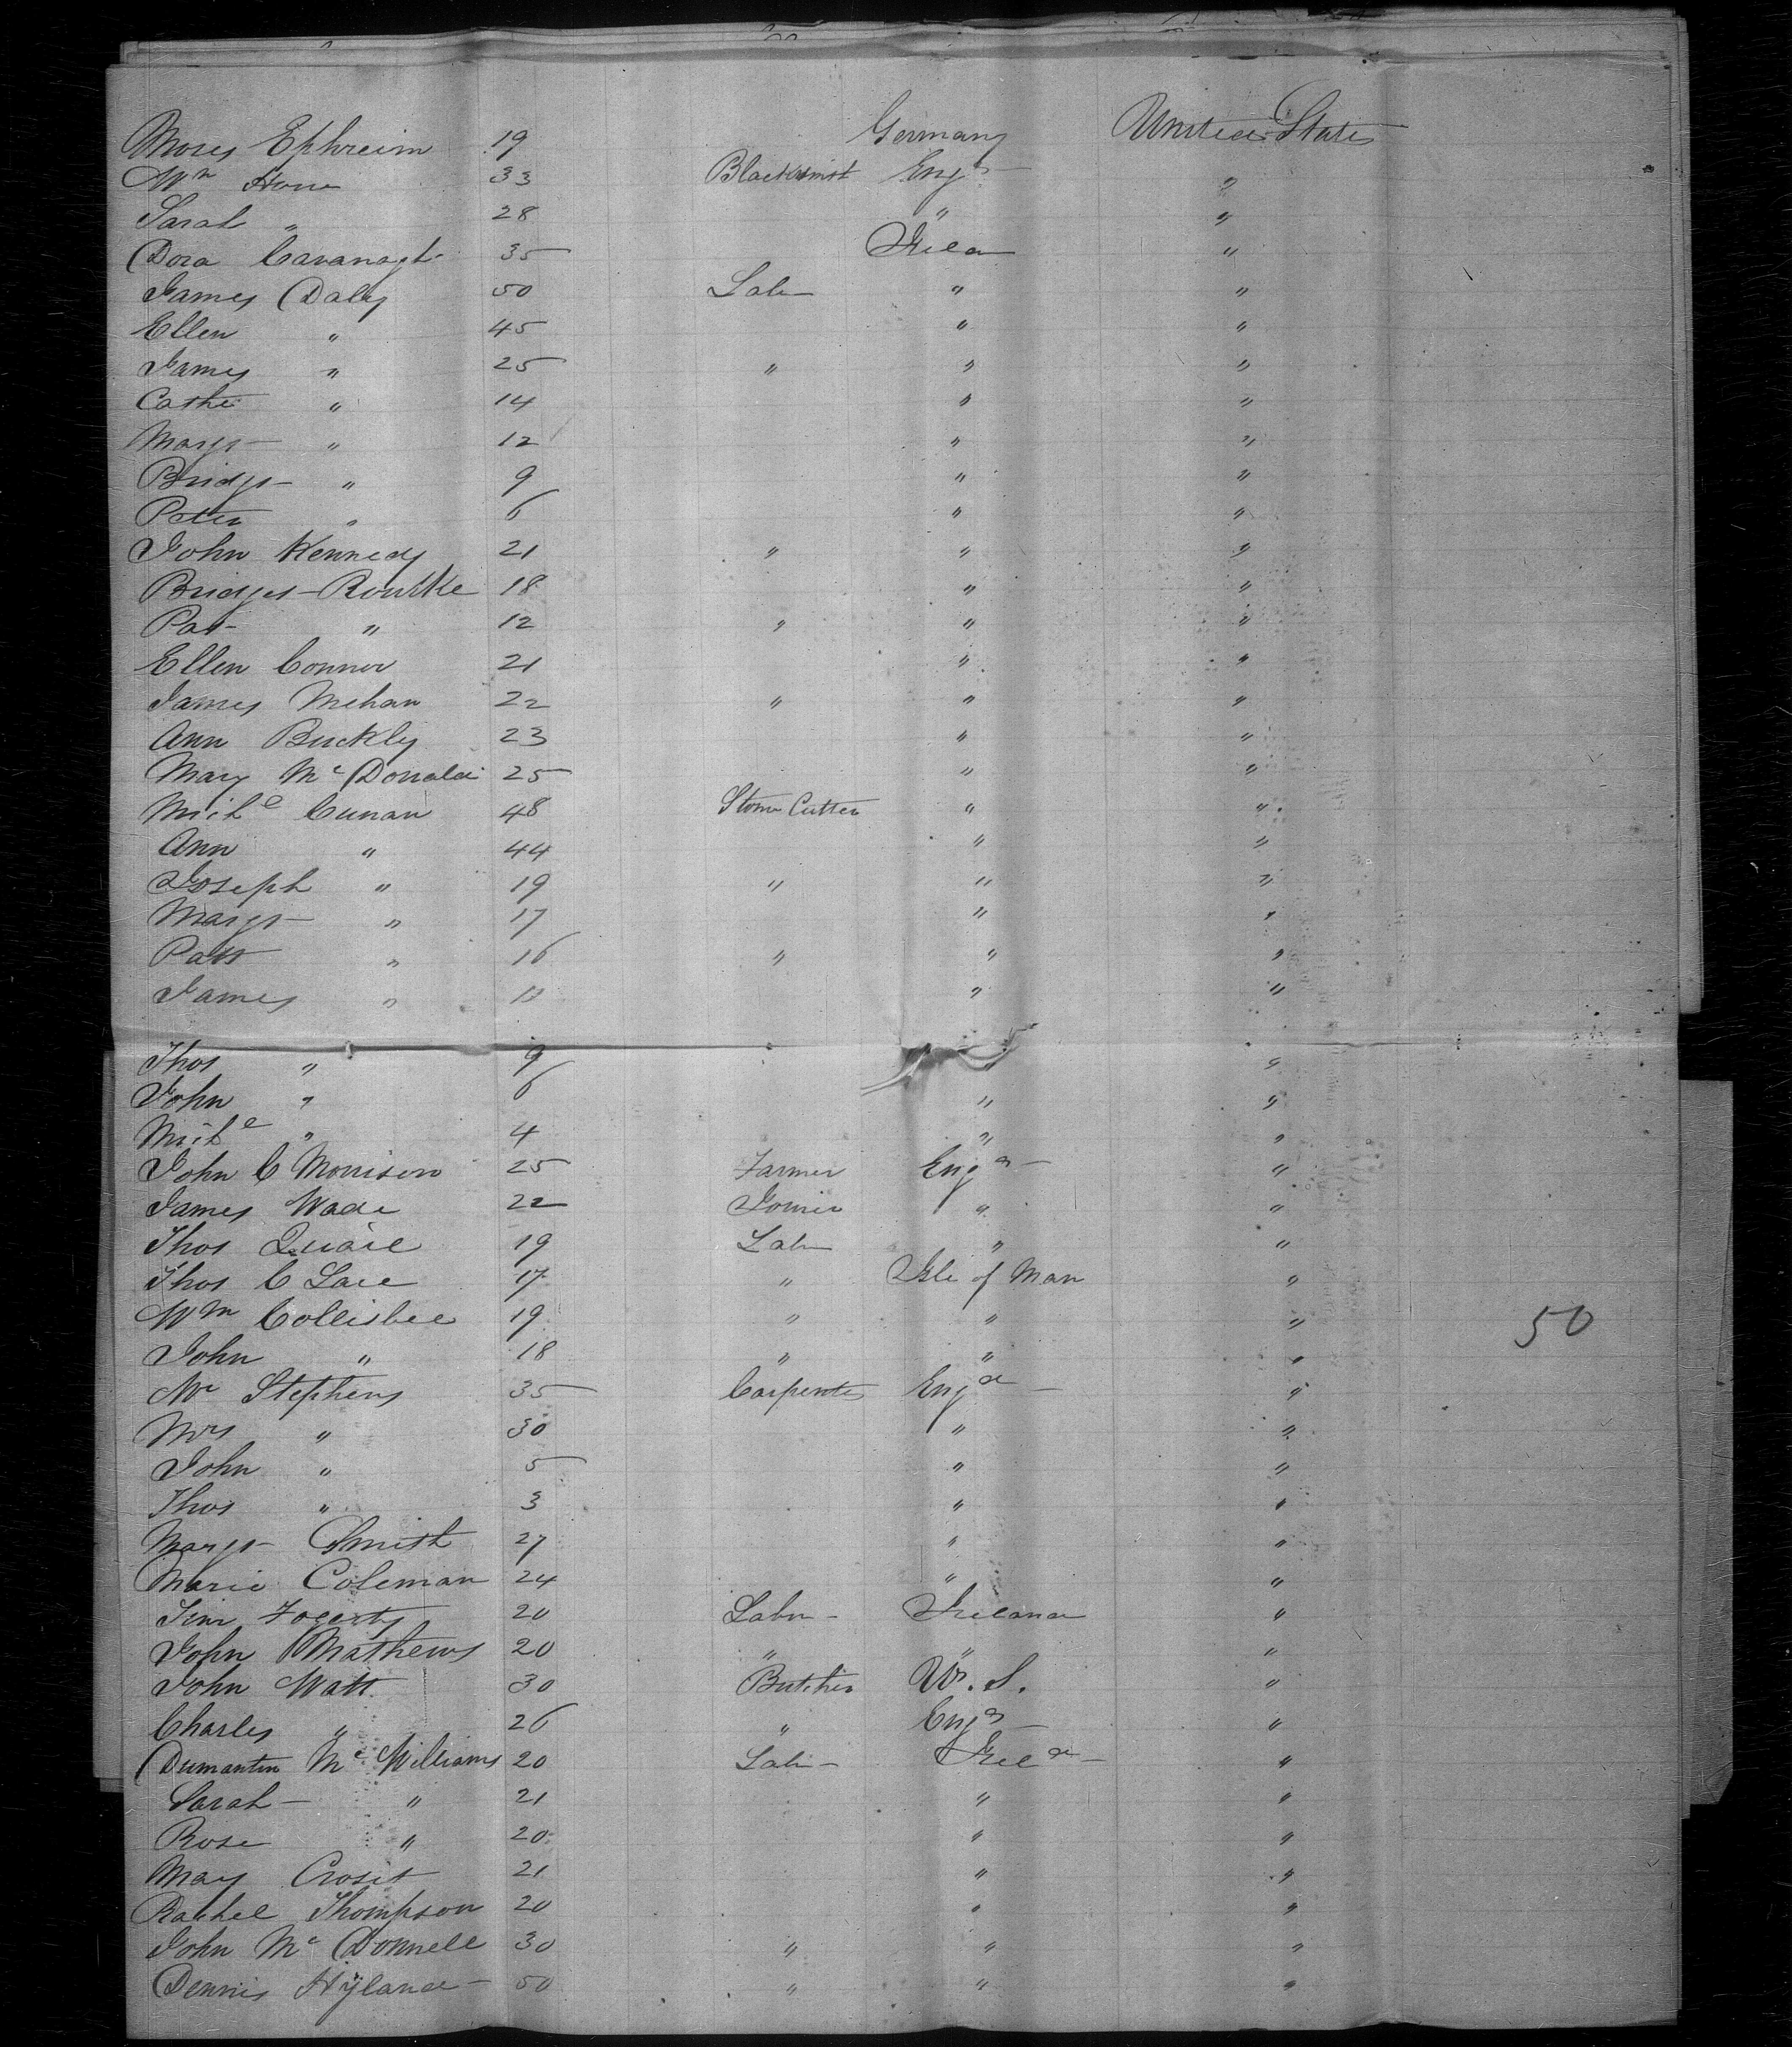 Moses Ephreim 19 Germany United States
Wm Hone 33 Blacksmit Engd "
Sarah " 28 " "
Dora Cavanagh 35 Irela "
James Daley 50 Labr " "
Ellen " 45 " "
James " 25 " " "
Cathe " 14 " "
Margt " 12 " "
Bridgt " 9 " "
Peter " 6 " "
John Kennedy 21 " " "
Bridget Rourke 18 " "
Pat " 12 " " "
Ellen Connor 21 " "
James Mehan 22 " " "
Ann Buckly 23 " "
Mary McDonald 25 " "
Michl Cunan 48 Stone Cutter " "
Ann " 44 " "
Joseph " 19 " " "
Margt " 17 " "
Patt " 16 " " "
James " " "
Thos " 9 " "
John " 6 " "
Michl " 4 " "
John C Morrison 25 Farmer Engd "
James Wade 22 Joiner " "
Thos Quaile 19 Labr " "
Thos C Lace 17 " Isle of Man "
Wm Collisbee 19 " " "
John " 18 " " "
Mr Stephens 35 Carpenter Engd "
Mrs " 30 " "
John " 5 " "
Thos " 3 " "
Margt Smith 27 " "
Marie Coleman 24 " "
Tim Fogerty 20 Labr Ireland "
John Mathews 20 " " "
John Watt 30 Butcher U. S. "
Charles " 26 " Engd "
McWilliams 20 Labr Ireld "
Sarah " 21 " "
Rose " 20 " "
Mary 21 " "
Rachel Thompson 20 " "
John McDonnell 30 " " "
Dennis Hyland 50 " " "
50